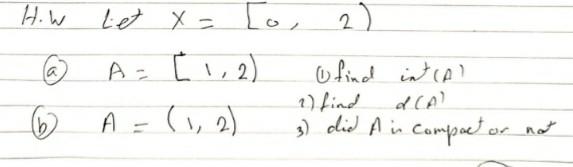 H.W Let X = [0, 2)
(a) A = [1, 2) (1) find int(A)
2) find cl(A)
(b) A = (1, 2) 3) did A is compact or not